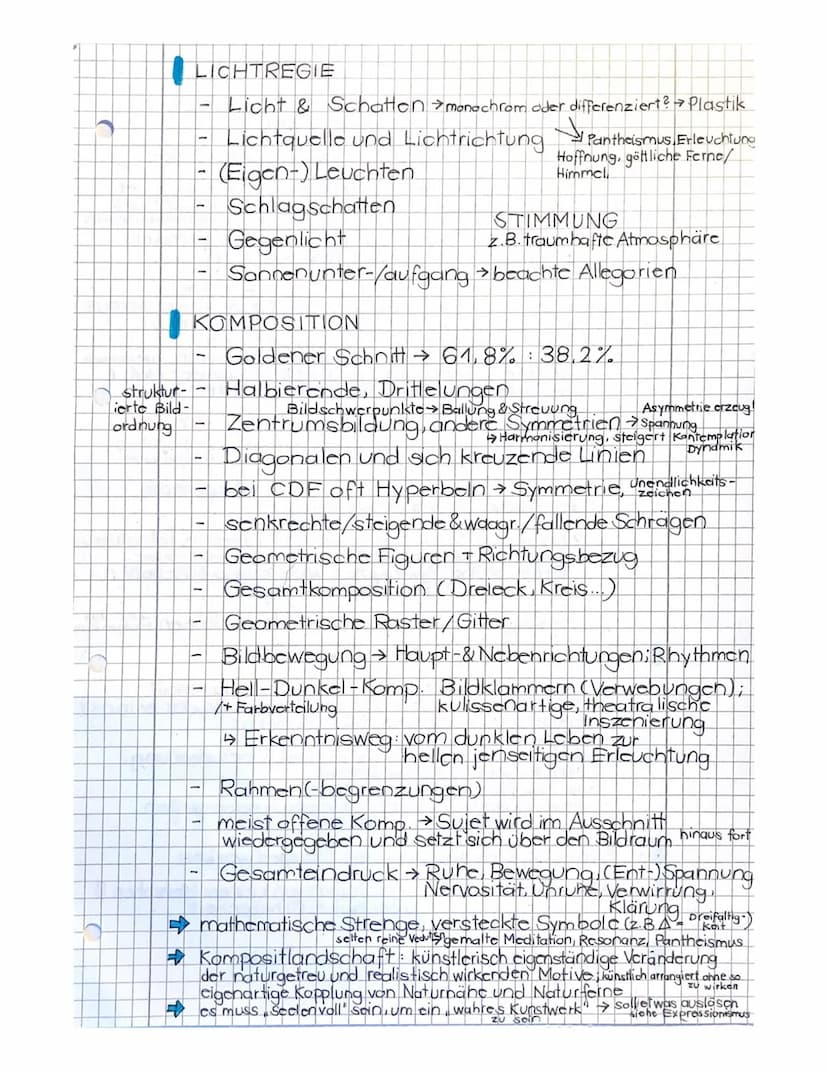 LICHTREGIE
- Licht & Schatten → monochrom oder differenziert? → Plastik
- Lichtquelle und Lichtrichtung → Pantheismus, Erleuchtung
Hoffnung, göttliche Ferne/
Himmel
- (Eigen-) Leuchten
- Schlagschatten
STIMMUNG
- Gegenlicht
z.B. traumhafte Atmosphäre
- Sonnenunter-/aufgang → beachte Allegorien
KOMPOSITION
- Goldener Schnitt → 61,8% : 38,2%
struktur-
ierte Bild-
ordnung
- Halbierende, Drittelungen
Bildschwerpunkte → Ballung & Streuung
Asymmetrie erzeugt
- Zentrumsbildung, andere Symmetrien → Spannung
↳ Harmonisierung, steigert Kontemplation
Dynamik
- Diagonalen und sich kreuzende Linien
- bei CDF oft Hyperbeln → Symmetrie, Unendlichkeits-
zeichen
- senkrechte/steigende & waagr./fallende Schrägen
- Geometrische Figuren + Richtungsbezug
- Gesamtkomposition (Dreieck, Kreis...)
- Geometrische Raster/Gitter
- Bildbewegung → Haupt- & Nebenrichtungen; Rhythmen
- Hell-Dunkel-Komp. Bildklammern (Verwebungen);
/+ Farbverteilung kulissenartige, theatralische
Inszenierung
↳ Erkenntnisweg: vom dunklen Leben zur
hellen jenseitigen Erleuchtung
- Rahmen(-begrenzungen)
- meist offene Komp. → Sujet wird im Ausschnitt
wiedergegeben und setzt sich über den Bildraum hinaus fort
- Gesamteindruck → Ruhe, Bewegung, (Ent-) Spannung
Nervosität, Unruhe, Verwirrung,
Klärung
⇒ mathematische Strenge, versteckte Symbole (z.B Δ = Dreifaltig-)
keit
selten reine gemalte Meditation, Resonanz, Pantheismus
⇒ Kompositlandschaft: künstlerisch eigenständige Veränderung
der naturgetreu und realistisch wirkenden Motive; künstlich arrangiert ohne so
zu wirken
eigenartige Kopplung von Naturnähe und Naturferne
⇒ es muss „seelenvoll" sein, um ein „wahres Kunstwerk" → soll etwas auslösen
zu sein siehe Expressionismus